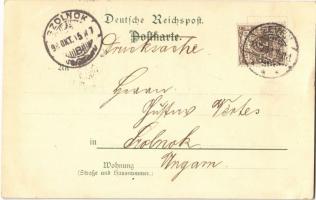 Deutsche Reichspost.
Postkarte.
Drucksache
SZOLNOK
98 OKT. 15
Herrn
Gustav Vértes
in Szolnok
Ungarn
Wohnung
(Straße und Hausnummer)